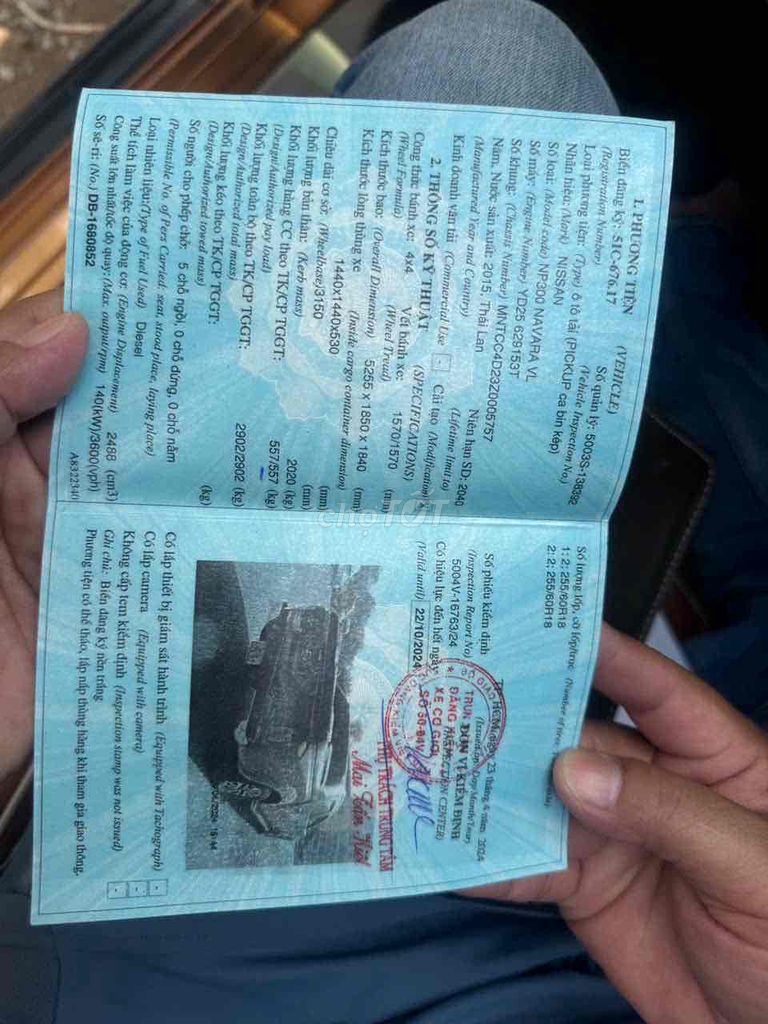 1. PHƯƠNG TIỆN (VEHICLE)
Biển đăng ký: 51C-676.17 Số quản lý: 5003S-136392
(Registration Number) (Vehicle Inspection No.)
Loại phương tiện: (Type) ô tô tải (PICKUP ca bin kép)
Nhãn hiệu: (Mark) NISSAN
Số loại: (Model code) NP300 NAVARA VL
Số máy: (Engine Number) YD25 629153T
Số khung: (Chassis Number) MNTCC4D23Z0005757
Năm, Nước sản xuất: 2015, Thái Lan Niên hạn SD: 2040
(Manufactured Year and Country) (Lifetime limit to)
Kinh doanh vận tải (Commercial Use) - Cải tạo (Modification)
2. THÔNG SỐ KỸ THUẬT (SPECIFICATIONS)
Công thức bánh xe: 4x4 Vết bánh xe: 1570/1570 (mm)
(Wheel Formula) (Wheel Tread)
Kích thước bao: (Overall Dimension) 5255 x 1850 x 1840 (mm)
Kích thước lòng thùng xe (Inside cargo container dimension)
1440x1440x530 (mm)
Chiều dài cơ sở: (Wheelbase) 3150 (mm)
Khối lượng bản thân: (Kerb mass) 2020 (kg)
Khối lượng hàng CC theo TK/CP TGGT: 557/557 (kg)
(Design/Authorized pay load)
Khối lượng toàn bộ theo TK/CP TGGT: 2902/2902 (kg)
(Design/Authorized total mass)
Khối lượng kéo theo TK/CP TGGT: (kg)
(Design/Authorized towed mass)
Số người cho phép chở: 5 chỗ ngồi, 0 chỗ đứng, 0 chỗ nằm
(Permissible No. of Pers Carried: seat, stood place, laying place)
Loại nhiên liệu: (Type of Fuel Used) Diesel
Thể tích làm việc của động cơ: (Engine Displacement) 2488 (cm3)
Công suất lớn nhất/tốc độ quay: (Max. output/rpm) 140(kW)/3600(vph)
Số sê-ri: (No.) DB-1680852 A8322340
Số lượng lốp, cỡ lốp/trục (Number of tires
1: 2; 255/60R18
2: 2; 255/60R18
Số phiếu kiểm định
(Inspection Report No)
5004V-16763/24
Có hiệu lực đến hết ngày
(Valid until) 22/10/2024
23 tháng 4 năm 2024
(Issued on: Day/Month/Year)
ĐƠN VỊ KIỂM ĐỊNH
(INSPECTION CENTER)
ĐĂNG KIỂM
XE CƠ GIỚI
SỐ 50-04V
PHỤ TRÁCH TRUNG TÂM
Mai Tấn Kiệt
Có lắp thiết bị giám sát hành trình (Equipped with Tachograph) -
Có lắp camera (Equipped with camera) -
Không cấp tem kiểm định (Inspection stamp was not issued) -
Ghi chú: Biển đăng ký nền trắng
Phương tiện có thể tháo, lắp nắp thùng hàng khi tham gia giao thông.
chợTỐT